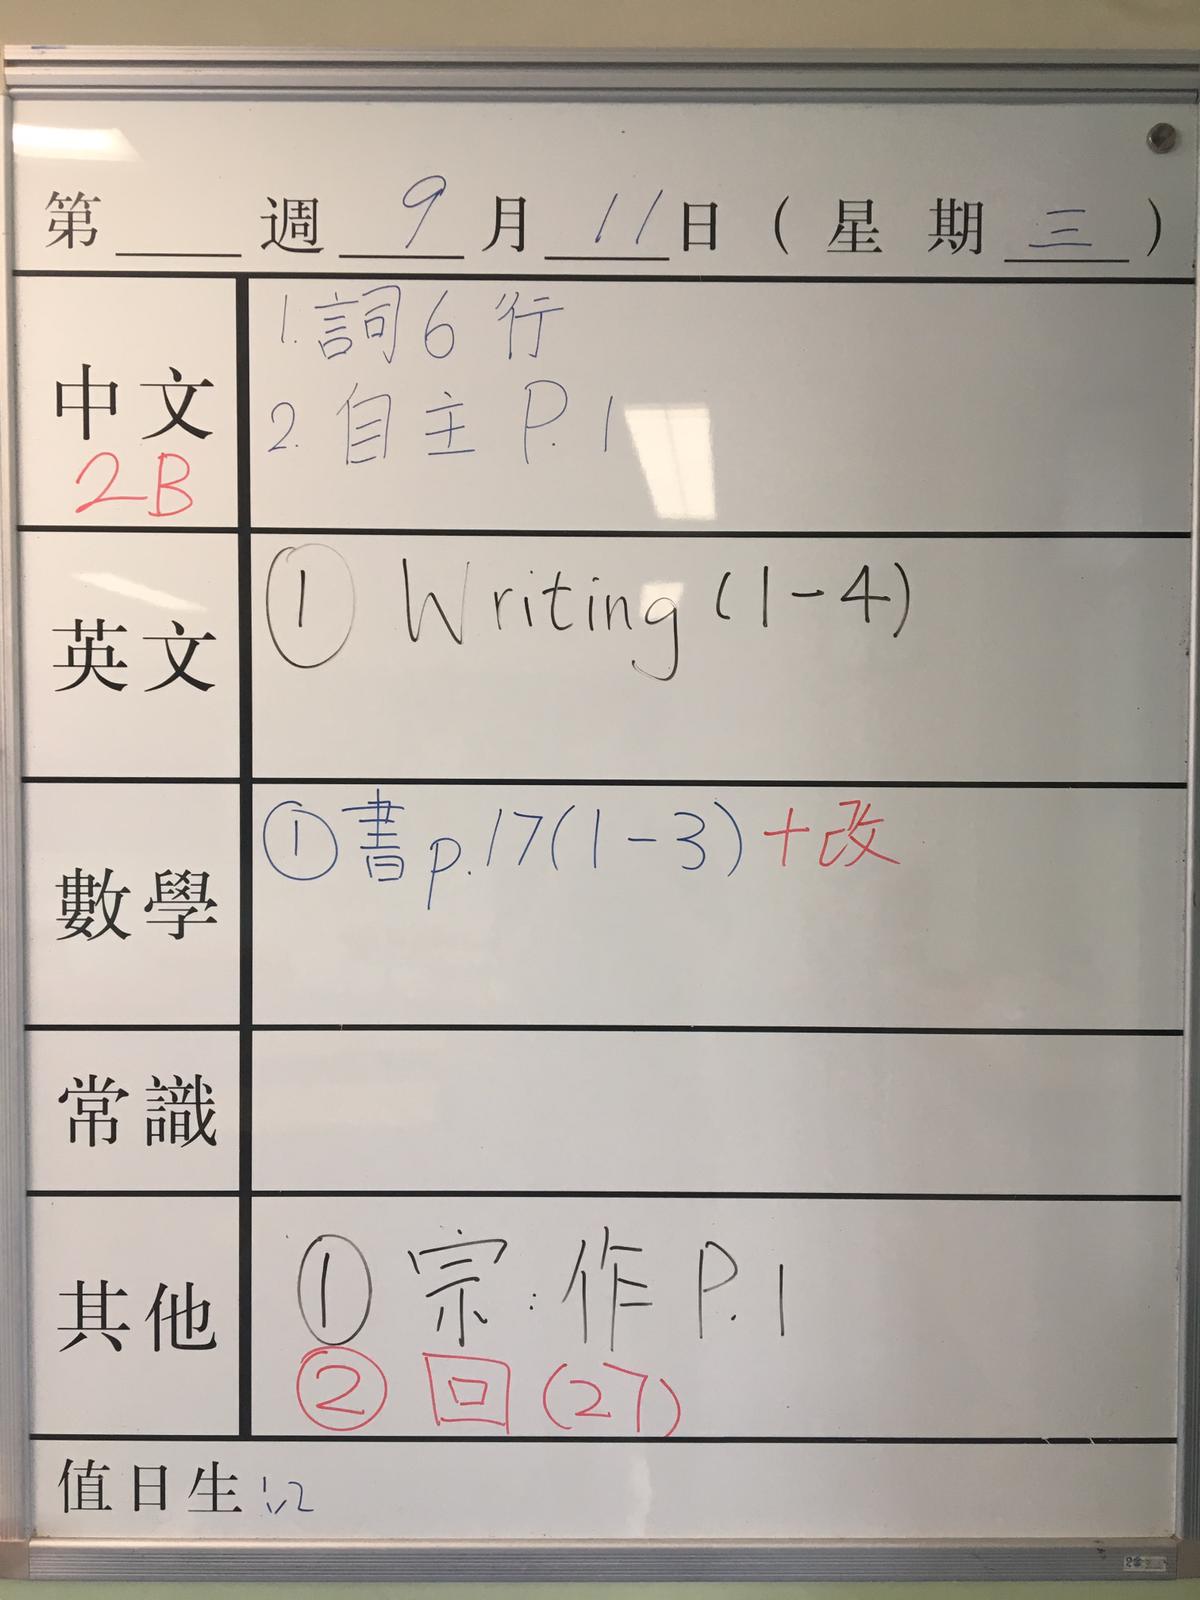 第 週 9 月 11 日 ( 星 期 三 )
中文
2B
1. 詞 6 行
2. 自主 P. 1
英文
① Writing (1-4)
數學
① 書 p.17(1-3)+改
常識
其他
① 宗:作 P.1
② 回 (27)
值日生:1,2